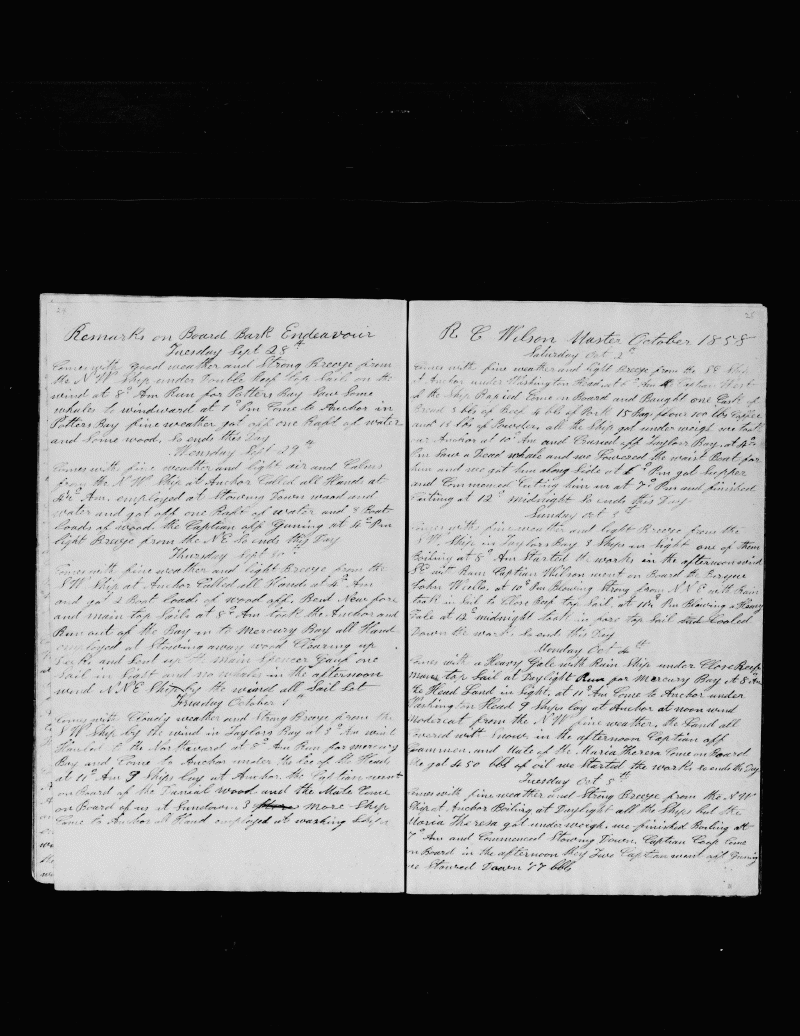 24
Remarks on Board Bark Endeavour
Tuesday Sept 28th
Comes with Good weather and Strong Breeze from
the N W Ship under Double Reef top Sails on the
wind at 8 Am Run for Potters Bay Saw Some
whales to windward at 1 Pm Come to Anchor in
Potters Bay fine weather got off one Raft of water
and Some wood, So ends this Day
Wensday Sept 29th
Comes with fine weather and light air and Calms
from the N W Ship at Anchor Called all Hands at
Am, employed at Stowing Down wood and
water and got off one Raft of water and 3 Boat
loads of wood the Captian off Guning at 4 Pm
light Breeze from the N E So ends this Day
Thursday Sept 30th
Comes with fine weather and light Breeze from the
N W Ship at Anchor Called all Hands at 4 Am
and got 2 Boat loads of wood off. Bent New fore
and main top Sails at 8 Am took the Anchor and
Run out of the Bay in to Mercury Bay all Hand
employed at Stowing away wood Clearing up
Decks and Sent up the main Spencer Gauf one
Sail in Sight and no whales in the afternoon
wind N.N.E Ship by the wind all Sail Set
Friday October 1
Comes with Cloudy weather and Strong Breeze from the
N W Ship by the wind in Taylors Bay at 3 Am wind
Hauled to the Norward at 8 Am Run for mercury
Bay and Come to Anchor under the lee of the Heads
at 11 Am 9 Ships lay at Anchor. the Captian went
on Board of the Danial Wood and the Mate Come
on Board of us at Sundown 3 more Ship
Come to Anchor all Hand employed at washing Ship
25
R C Wilson Master October 1858
Saturday Oct 2d
Comes with fine weather and light Breeze from the Ship
at Anchor under Washington Head at Am Captian West
of the Ship Rapid Come on Board and Bought one Cask of
Bread 3 bbs of Beef 4 bbl of Pork 15 Bags flour 100 lbs Coffee
and 18 lbs of Powder, all the Ship got under weigh we took
our Anchor at 10 Am and Cruised off Taylors Bay, at 4
Pm Saw a Dead whale and we Lowered the waist Boat for
him and we got him along Side at 6 Pm got Supper
and Commenced Cuting him in at 7 Pm and finished
Cuting at 12 midnight So ends this Day
Sunday Oct 3th
Comes with fine weather and light Breeze from the
N W Ship in Taylors Bay 3 Ships in Sight one of them
Boiling at 8 Am Started the works in the afternoon wind
with Rain Captian Wilson went on Board the
John Wells. at 10 Pm Blowing Strong from N N E with Rain
took in Sail to Close Reef top Sail at 11 Pm Blowing a Heavy
Gale at 12 midnight took in fore top Sail and Cooled
Down the works So end this Day
Monday Oct 4th
Comes with a Heavy Gale with Rain Ship under Close Reef
main top Sail at Daylight Run for Mercury Bay At 8 Am
the Head Land in Sight, at 11 Am Come to Anchor under
Washington Head 9 Ships lay at Anchor at noon wind
modereat from the N W fine weather, the Land all
Covered with Snow. in the afternoon Captian off
Gawmen. and Mate of the Maria Theresa Come on Board
He got 450 bbl of oil we Started the works So ends this Day
Tuesday Oct 5th
Comes with fine weather and Strong Breeze from the N W
Ship at Anchor Boiling at Daylight all the Ships but the
Maria Theresa got under weigh. we finished Boiling at
7 Am and Commenced Stowing Down. Captian Coop Come
on Board in the afternoon they Two Captian went off Guning
we Stowed Down 77 bbls